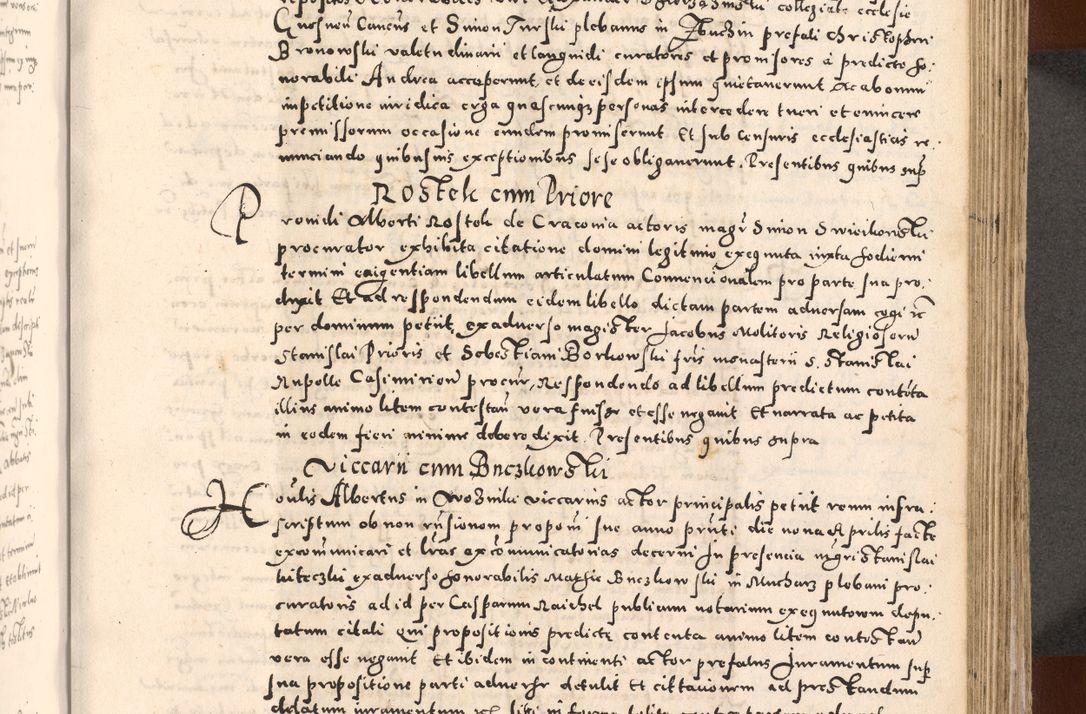 Gnosnen Cancus et Simon Turski plebanus in prefati Christophori
Bronowski valetudinarii et languidi curatores et promisores a predicto ho.
norabili Andrea acceperunt, et de eisdem ipsum quietaverunt Ac ab omni
impetitione iuridica erga quascunqz personas intercedere tueri et evincere
premissorum occasione eundem promiserunt. Et sub Censuris ecclesiasticis re.
nunciando quibusvis exceptionibus sese obligaverunt. Presentibus quibus sup
Rostek cum Priore
Providi Alberti Rostek de Cracovia actoris magr Simon
procurator exhibita citatione domini legitime exequuta iuxta hodierni
termini exigentiam libellum articulatum Convencionalem pro parte sua pro.
duxit Et ad respondendum eidem libello dictam partem adversam cogi
per dominum petiit, ex adverso magister Jacobus Molitoris Religiosorum
Stanislai Prioris et Sebestiani Borkowski fris monasterii S. Stanislai
Rupelle Casimirien procur, Respondendo ad libellum predictum contenta
illius animo litem contestan vera fuisse et esse negavit Et narrata ac petita
in eodem fieri minime debere dixit. Presentibus quibus supra
Viccarii cum Buczkowski
Honlis Albertus in Wozniki viccarius actor principalis petiit reum infra.
scriptum ob non propom sue anno prnti die nona Aprilis facte
excommunicari et lras excommunicatorias decerni In presencia mgri Stanislai
ex adverso honorabilis Mathie Buczkowski in Mucharz plebani pro.
curatoris ad id per Casparum Raichel publicum notarium exequutorem depu.
tatum citati qui propositionis predicte contenta animo litem contestan
vera esse negavit Et ibidem in continenti actor prefatus Juramentum sup
sua propositione parti adverse detulit Et cittationem ad prestandum
delatum iuramentum